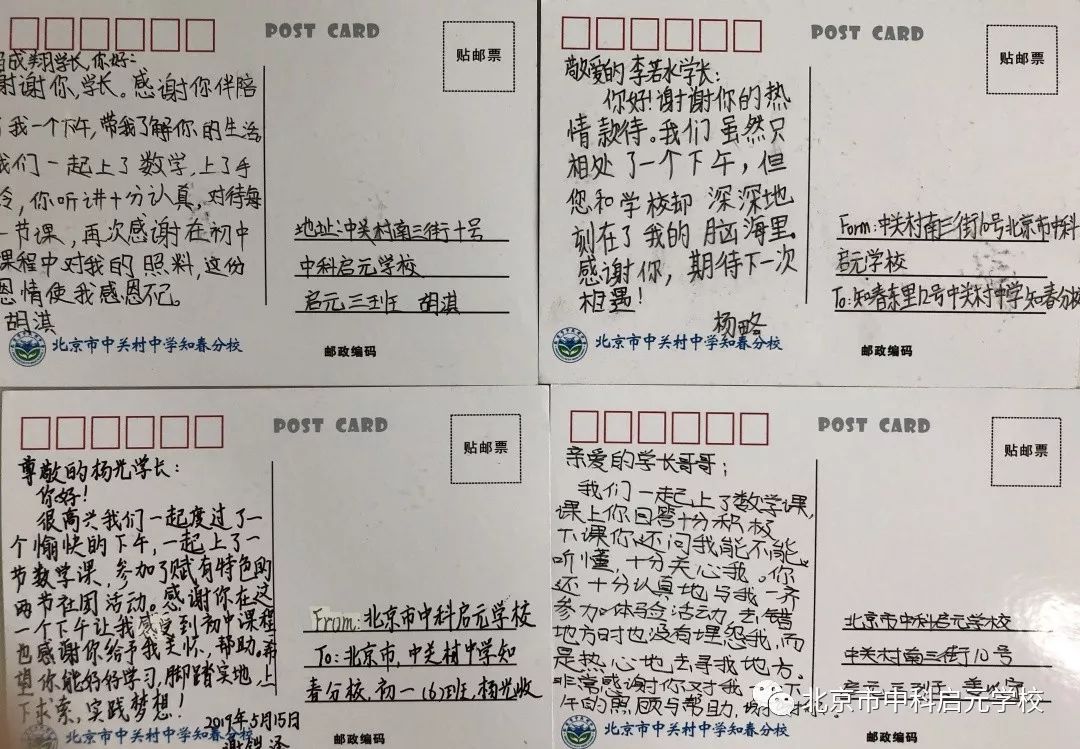 POST CARD
贴邮票
成翔学长,你好:
谢谢你,学长。感谢你伴陪
我一个下午,带我了解你的生活
我们一起上了数学,上了手
你听讲十分认真,对待每
一节课,再次感谢在初中
课程中对我的照料,这份
恩情使我感恩不忘。
胡淇
地址:中关村南三街十号
中科启元学校
启元三班 胡淇
北京市中关村中学知春分校
邮政编码
POST CARD
贴邮票
敬爱的李若水学长:
你好!谢谢你的热
情款待。我们虽然只
相处了一个下午,但
您和学校却深深地
刻在了我的脑海里。
感谢你,期待下一次
相遇!
杨略
Form:中关村南三街10号北京市中科
启元学校
To:知春东里12号中关村中学知春分校
北京市中关村中学知春分校
邮政编码
POST CARD
贴邮票
尊敬的杨光学长:
你好!
很高兴我们一起度过了一
个愉快的下午,一起上了一
节数学课,参加了赋有特色的
两节社团活动。感谢你在这
一个下午让我感受到初中课程
也感谢你给予我关怀,帮助。希
望你能好好学习,脚踏实地,上
下求索,实践梦想!
2019年5月15日
From:北京市中科启元学校
To:北京市,中关村中学知
春分校,初一(6)班,杨光收
北京市中关村中学知春分校
邮政编码
POST CARD
贴邮票
亲爱的学长哥哥;
我们一起上了数学课,
课上你回答十分积极
下课你还问我能不能
听懂,十分关心我。你
还十分认真地与我一齐
参加体验活动,去错
地方时也没有埋怨我,而
是热心地去寻找地方。
非常感谢你对我 下
午的照顾与帮助,
北京市中科启元学校
中关村南三街10号
启元三班
北京市中关村中学知春分校
邮政编码
北京市中科启元学校